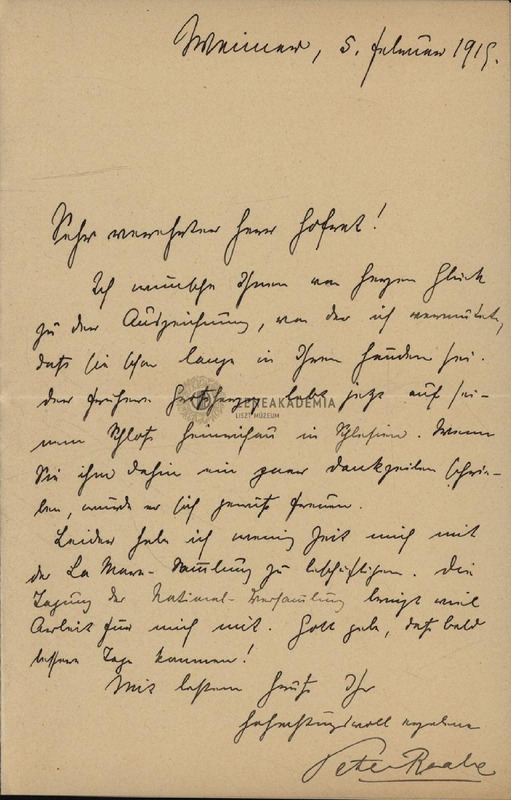 Weimar, 5. Februar 1919.
Sehr verehrter Herr Hofrat!
Ich wünsche Ihnen von Herzen Glück
zu der Auszeichnung, von der ich vermutete,
daß sie schon lange in Ihren Händen sei.
Der frühere Großherzog lebt jetzt auf sei-
nem Schloß Heinrichau in Schlesien. Wenn
Sie ihm dahin ein paar Dankzeilen schrie-
ben, würde er sich gewiß freuen.
Leider habe ich wenig Zeit mich mit
der La Mara-Sammlung zu beschäftigen. Die
Tagung der National-Versammlung bringt viel
Arbeit für mich mit. Gott gebe, daß bald
bessere Tage kommen!
Mit bestem Gruß Ihr
hochachtungsvoll ergebener
Peter Raabe
ZENEAKADÉMIA
LISZT MÚZEUM